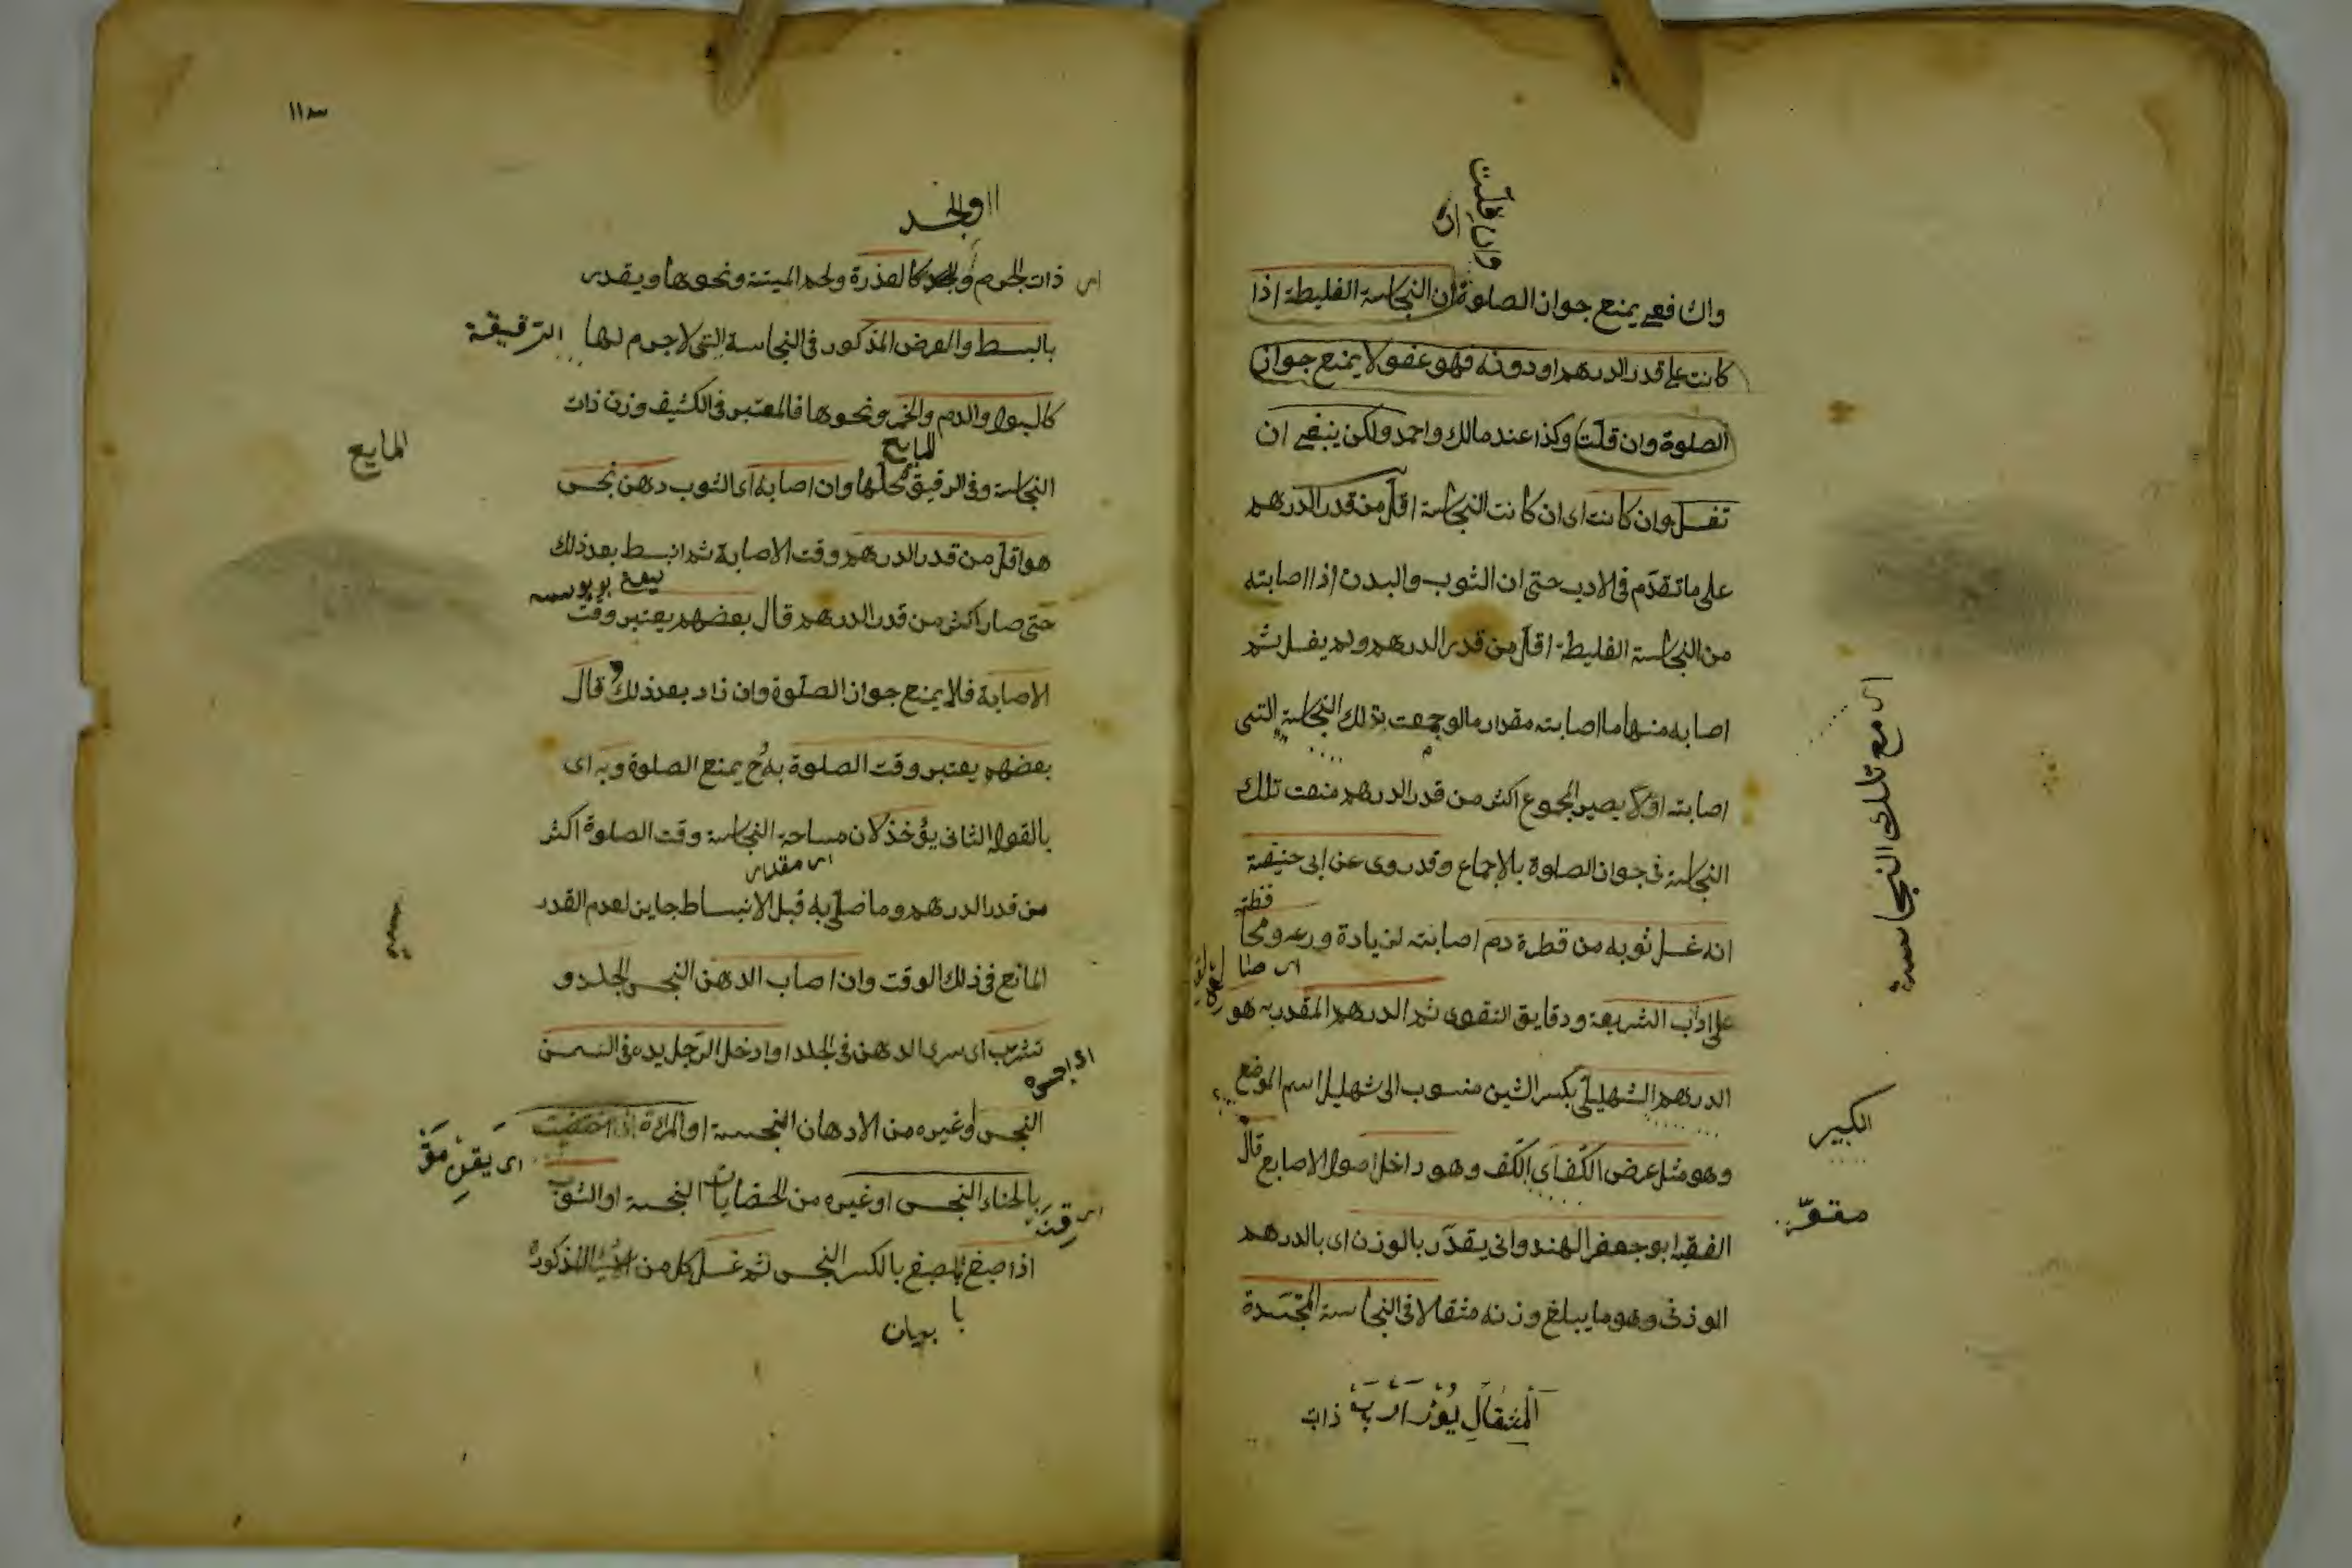 وان قلت
ان
والشافعي يمنع جواز الصلوة ان النجاسة الغليظة اذا
كانت على قدر الدرهم او دونه فهو عفو لا يمنع جواز
الصلوة وان قلت وكذا عند مالك واحمد ولكن ينبغي ان
تغسل وان كانت اى ان كانت النجاسة اقل من قدر الدرهم
على ما تقدم فى الادب حتى ان الثوب والبدن اذا اصابته
من النجاسة الغليظة اقل من قدر الدرهم ولم يغسل ثم
اصابه منها ما اصابته مقدار ما لو جمعت بذلك النجاسة التى
اصابته اولا يصير المجموع اكثر من قدر الدرهم منعت تلك
النجاسة فى جواز الصلوة بالاجماع وقد روى عن ابى حنيفة
انه غسل ثوبه من قطرة دم اصابته لزيادة ورعه ومحا
على اداب الشريعة ودقايق التقوى ثم الدرهم المقدر به هو
الدرهم الشهيلى بكسر الشين منسوب الى شهليل اسم الموضع
وهو مثل عرض الكف اى الكف وهو داخل اصول الاصابع قال
الفقيه ابو جعفر الهندوانى يقدر بالوزن اى بالدرهم
الوزنى وهو ما يبلغ وزنه مثقالا فى النجاسة المجسدة
ذات
اى مع تلك النجاسة
الكبير
مقعر
١١٣
والجسد
اى ذات الجرم كالعذرة ولحم الميتة ونحوها ويقدر
بالبسط والعرض المذكور فى النجاسة التى لا جرم لها الرقيقة
كالبول والدم والخمر ونحوها فالمعتبر فى الكثيف وزن ذات
المايع
المايع
النجاسة وفى الرقيق محلها وان اصابه اى الثوب دهن نجس
هو اقل من قدر الدرهم وقت الاصابة ثم انبسط بعد ذلك
حتى صار اكثر من قدر الدرهم قال بعضهم يعتبر وقت
الاصابة فلا يمنع جواز الصلوة وان زاد بعد ذلك وقال
بعضهم يعتبر وقت الصلوة به ح يمنع الصلوة وبه اى
بالقول الثانى يؤخذ لان مساحة النجاسة وقت الصلوة اكثر
اى مقدار
من قدر الدرهم وما صلى به قبل الانبساط جايز لعدم القدر
المانع فى ذلك الوقت وان اصاب الدهن النجس الجلد و
تشرب اى سرى الدهن فى الجلد او ادخل الرجل يده فى السمن
النجس او غيره من الادهان النجسة او المرأة اذا اختضبت
بالحناء النجس او غيره من الخضابات النجسة او الثوب
اذا صبغ بالصبغ بالكسر النجس ثم غسل كل من المذكورة